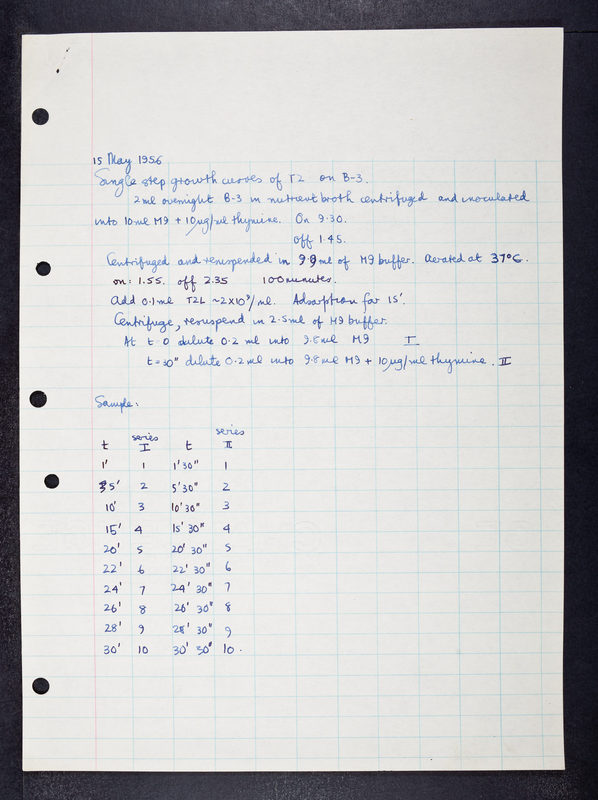 15 May 1956
Single step growth curves of T2 on B-3.
2ml overnight B-3 in nutrient broth centrifuged and inoculated
into 10ml M9 + 10µg/ml thymine. On 9.30.
Off 1.45.
Centrifuged and resuspended in 9.9ml of M9 buffer. Aerated at 37°C.
on: 1.55. off 2.35 100 minutes.
Add 0.1ml T2L ~2x10⁹/ml. Adsorption for 15'.
Centrifuge, resuspend in 2.5ml of M9 buffer.
At t=0 dilute 0.2 ml into 9.8ml M9 I
t=30" dilute 0.2ml into 9.8ml M9 + 10µg/ml thymine. II
Sample:
t series I t series II
1' 1 1'30" 1
5' 2 5'30" 2
10' 3 10'30" 3
15' 4 15'30" 4
20' 5 20'30" 5
22' 6 22'30" 6
24' 7 24'30" 7
26' 8 26'30" 8
28' 9 28'30" 9
30' 10 30'30" 10.